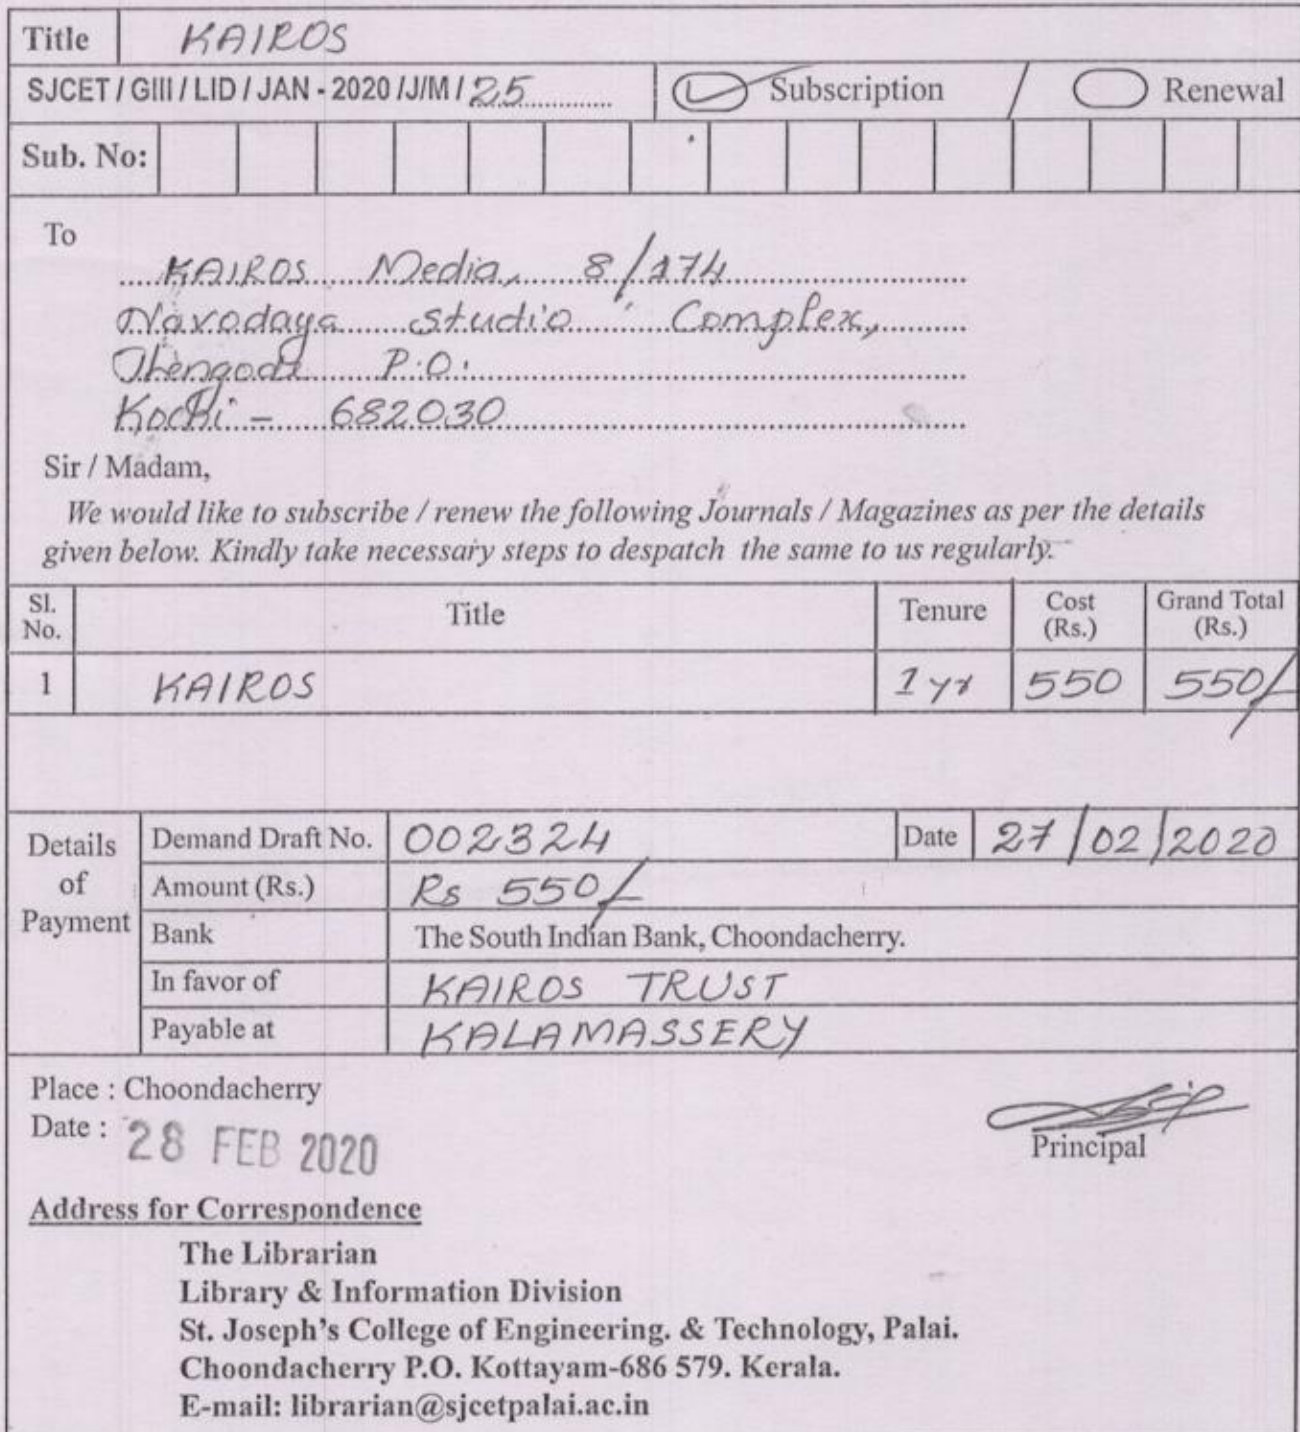 Title KAIROS
SJCET / GIII / LID / JAN - 2020 /J/M / 25 Subscription / Renewal
Sub. No:
To
KAIROS Media, 8/174
Navodaya studio Complex,
Thengode P.O.
Kochi - 682030
Sir / Madam,
We would like to subscribe / renew the following Journals / Magazines as per the details
given below. Kindly take necessary steps to despatch the same to us regularly.
Sl. No. Title Tenure Cost (Rs.) Grand Total (Rs.)
1 KAIROS 1 yr 550 550/-
Details of Payment
Demand Draft No. 002324 Date 27/02/2020
Amount (Rs.) Rs 550/-
Bank The South Indian Bank, Choondacherry.
In favor of KAIROS TRUST
Payable at KALAMASSERY
Place : Choondacherry
Date : 28 FEB 2020
Principal
Address for Correspondence
The Librarian
Library & Information Division
St. Joseph's College of Engineering. & Technology, Palai.
Choondacherry P.O. Kottayam-686 579. Kerala.
E-mail: librarian@sjcetpalai.ac.in